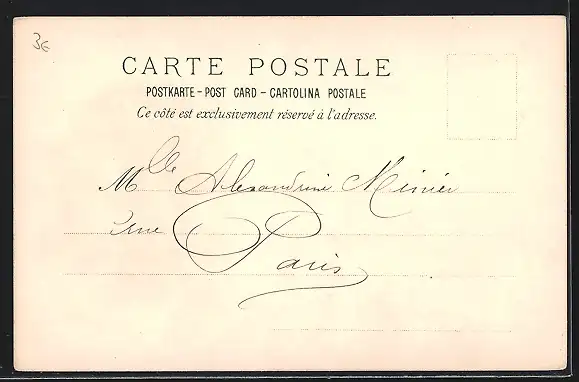 3€
CARTE POSTALE
POSTKARTE - POST CARD - CARTOLINA POSTALE
Ce côté est exclusivement réservé à l'adresse.
Mlle Alexandrine Menier
rue
Paris